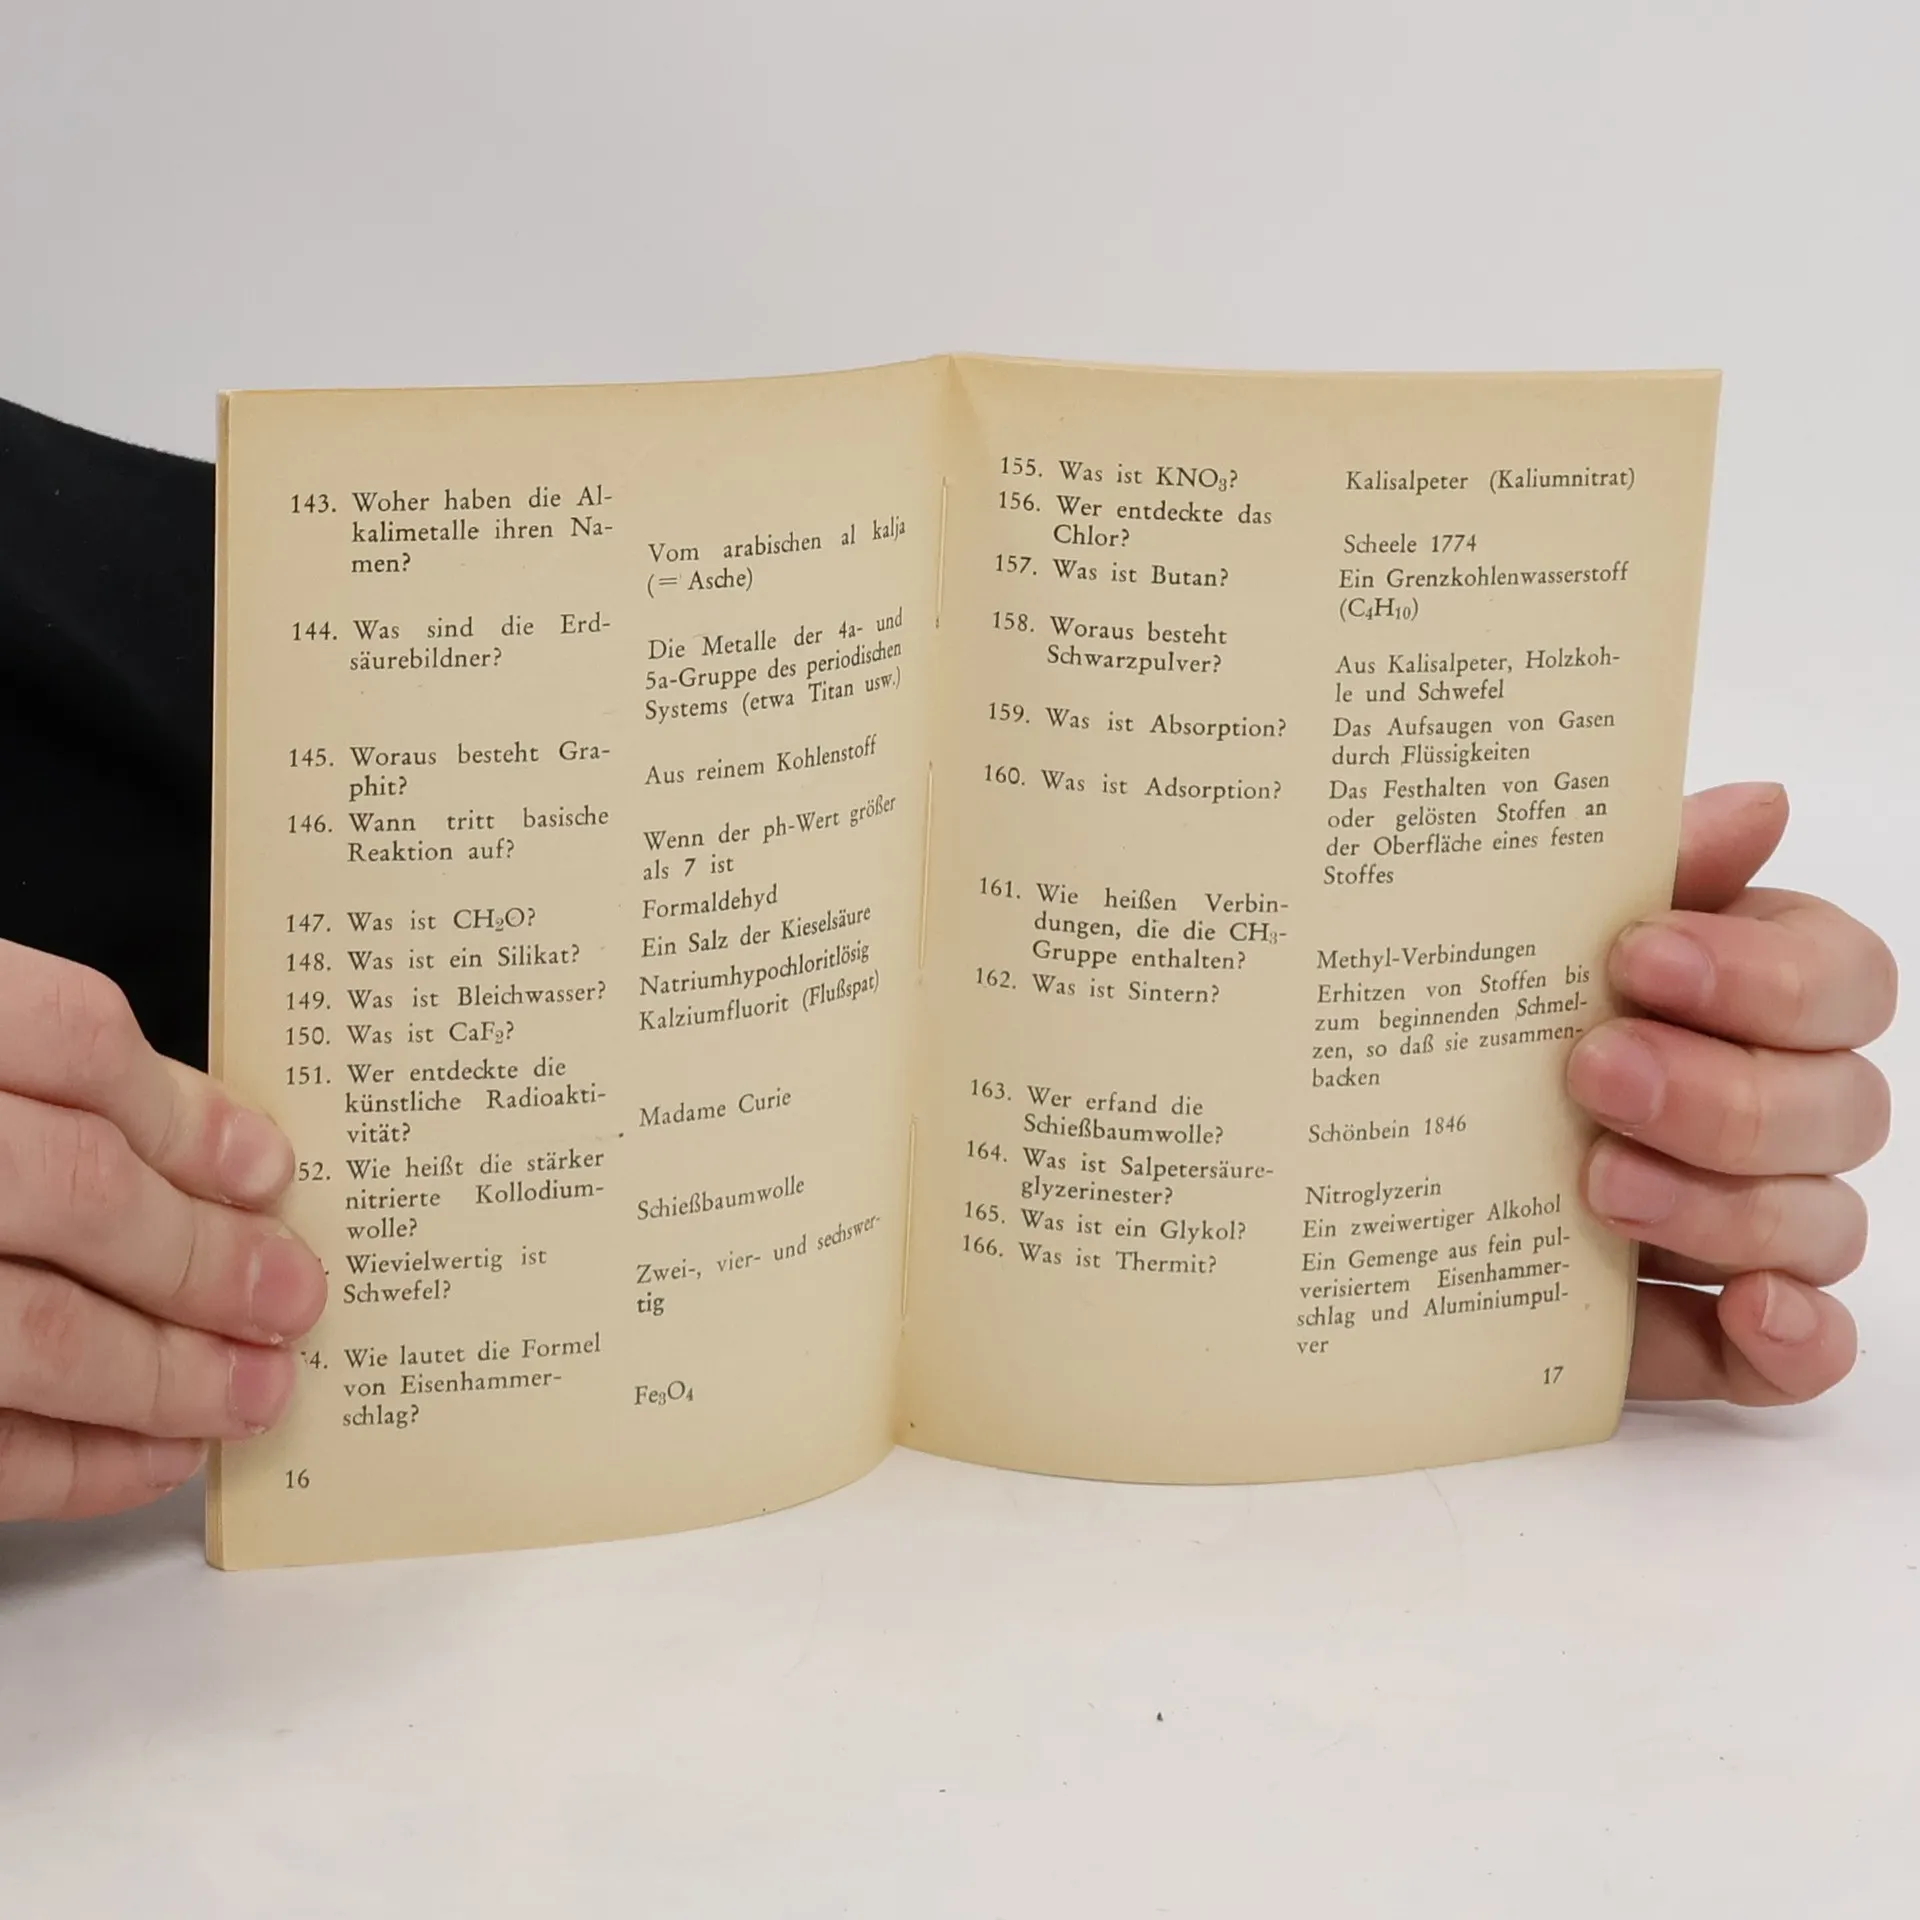 143. Woher haben die Al-
kalimetalle ihren Na-
men?
Vom arabischen al kalja
(= Asche)
144. Was sind die Erd-
säurebildner?
Die Metalle der 4a- und
5a-Gruppe des periodischen
Systems (etwa Titan usw.)
145. Woraus besteht Gra-
phit?
Aus reinem Kohlenstoff
146. Wann tritt basische
Reaktion auf?
Wenn der ph-Wert größer
als 7 ist
147. Was ist CH₂O?
Formaldehyd
148. Was ist ein Silikat?
Ein Salz der Kieselsäure
149. Was ist Bleichwasser?
Natriumhypochloritlösig
150. Was ist CaF₂?
Kalziumfluorit (Flußspat)
151. Wer entdeckte die
künstliche Radioakti-
vität?
Madame Curie
52. Wie heißt die stärker
nitrierte Kollodium-
wolle?
Schießbaumwolle
. Wievielwertig ist
Schwefel?
Zwei-, vier- und sechswer-
tig
4. Wie lautet die Formel
von Eisenhammer-
schlag?
Fe₃O₄
16
155. Was ist KNO₃?
Kalisalpeter (Kaliumnitrat)
156. Wer entdeckte das
Chlor?
Scheele 1774
157. Was ist Butan?
Ein Grenzkohlenwasserstoff
(C₄H₁₀)
158. Woraus besteht
Schwarzpulver?
Aus Kalisalpeter, Holzkoh-
le und Schwefel
159. Was ist Absorption?
Das Aufsaugen von Gasen
durch Flüssigkeiten
160. Was ist Adsorption?
Das Festhalten von Gasen
oder gelösten Stoffen an
der Oberfläche eines festen
Stoffes
161. Wie heißen Verbin-
dungen, die die CH₃-
Gruppe enthalten?
Methyl-Verbindungen
162. Was ist Sintern?
Erhitzen von Stoffen bis
zum beginnenden Schmel-
zen, so daß sie zusammen-
backen
163. Wer erfand die
Schießbaumwolle?
Schönbein 1846
164. Was ist Salpetersäure-
glyzerinester?
Nitroglyzerin
165. Was ist ein Glykol?
Ein zweiwertiger Alkohol
166. Was ist Thermit?
Ein Gemenge aus fein pul-
verisiertem Eisenhammer-
schlag und Aluminiumpul-
ver
17